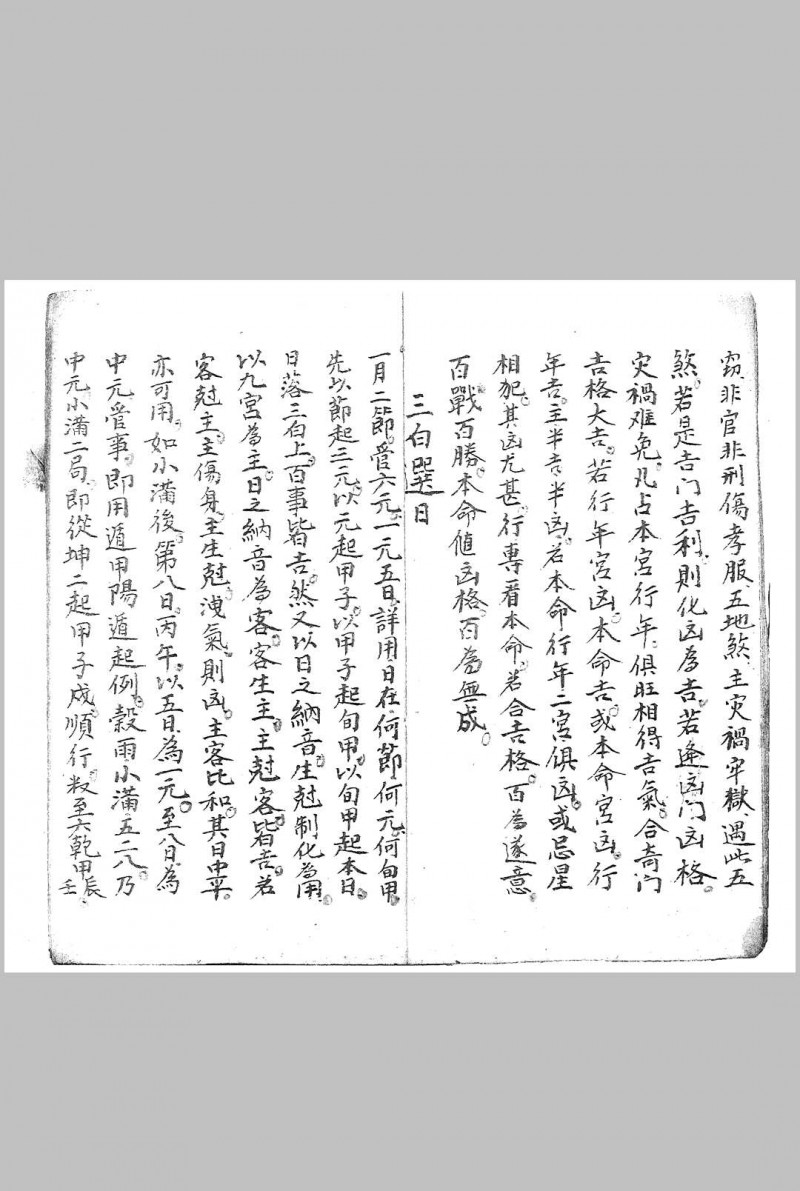 窃、非官非刑傷孝服、五地煞、主灾禍牢獄、遇此五
煞。若是吉门吉利、則化凶為吉。若逢凶门凶格。
灾禍难免。凡占本宮行年。俱旺相得吉氣。合奇门
吉格大吉。若行年宮凶。本命吉。或本命宮凶。行
年吉。主半吉半凶。若本命行年二宮俱凶。或忌星
相犯。其凶尤甚。行專看本命。若合吉格。百為遂意
百戰百勝。本命值凶格。百為無成。
三白選日
一月二節。管六元。一元五日。詳用日在何節何元何旬甲。
先以節起三元。以元起甲子。以甲子起旬甲。以旬甲起本日。
日落三白上。百事皆吉。然又以日之納音。生尅制化為用。
以九宮為主。日之納音為客。客生主。主尅客。皆吉。若
客尅主。主傷身。主生尅。洩氣則凶。主客比和。其日中平。
亦可用。如小滿後。第八日。丙午。以五日為一元。至八日。為
中元管事。即用遁甲陽遁起例。穀雨小滿五二八。乃
中元。小滿二局。即從坤二起甲子成。順行。数至六乾甲辰
壬